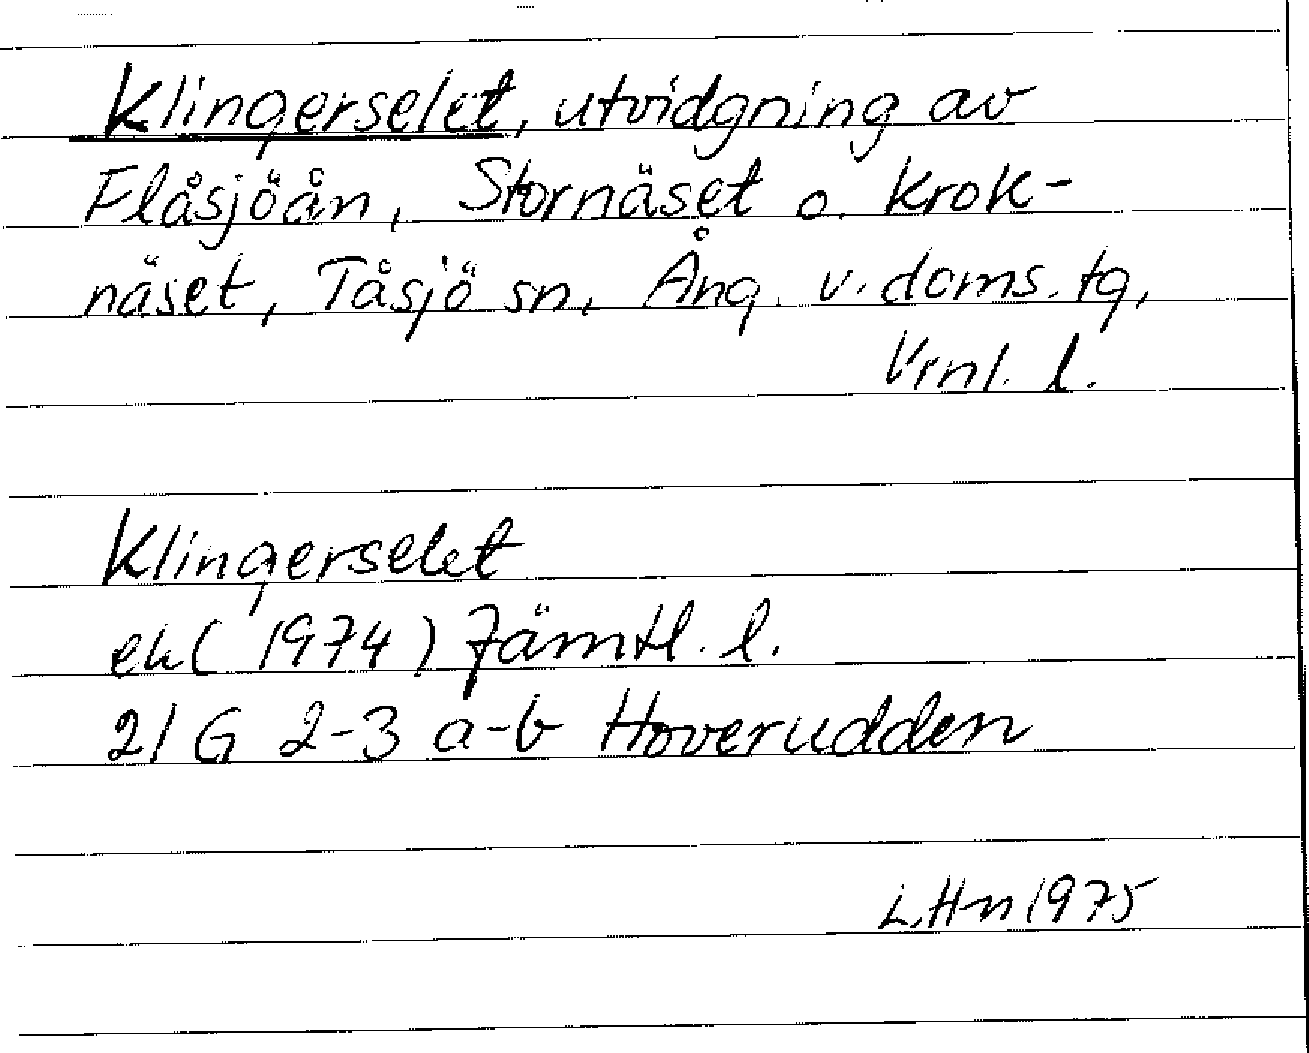 Klingerselet, utvidgning av
Flåsjöån, Stornäset o. Krok-
näset, Tåsjö sn, Ång. v. doms. tg,
Vrnl. l.
Klingerselet
ek (1974) Jämtl. l.
21 G 2-3 a-b Hoverudden
L.H-n 1975